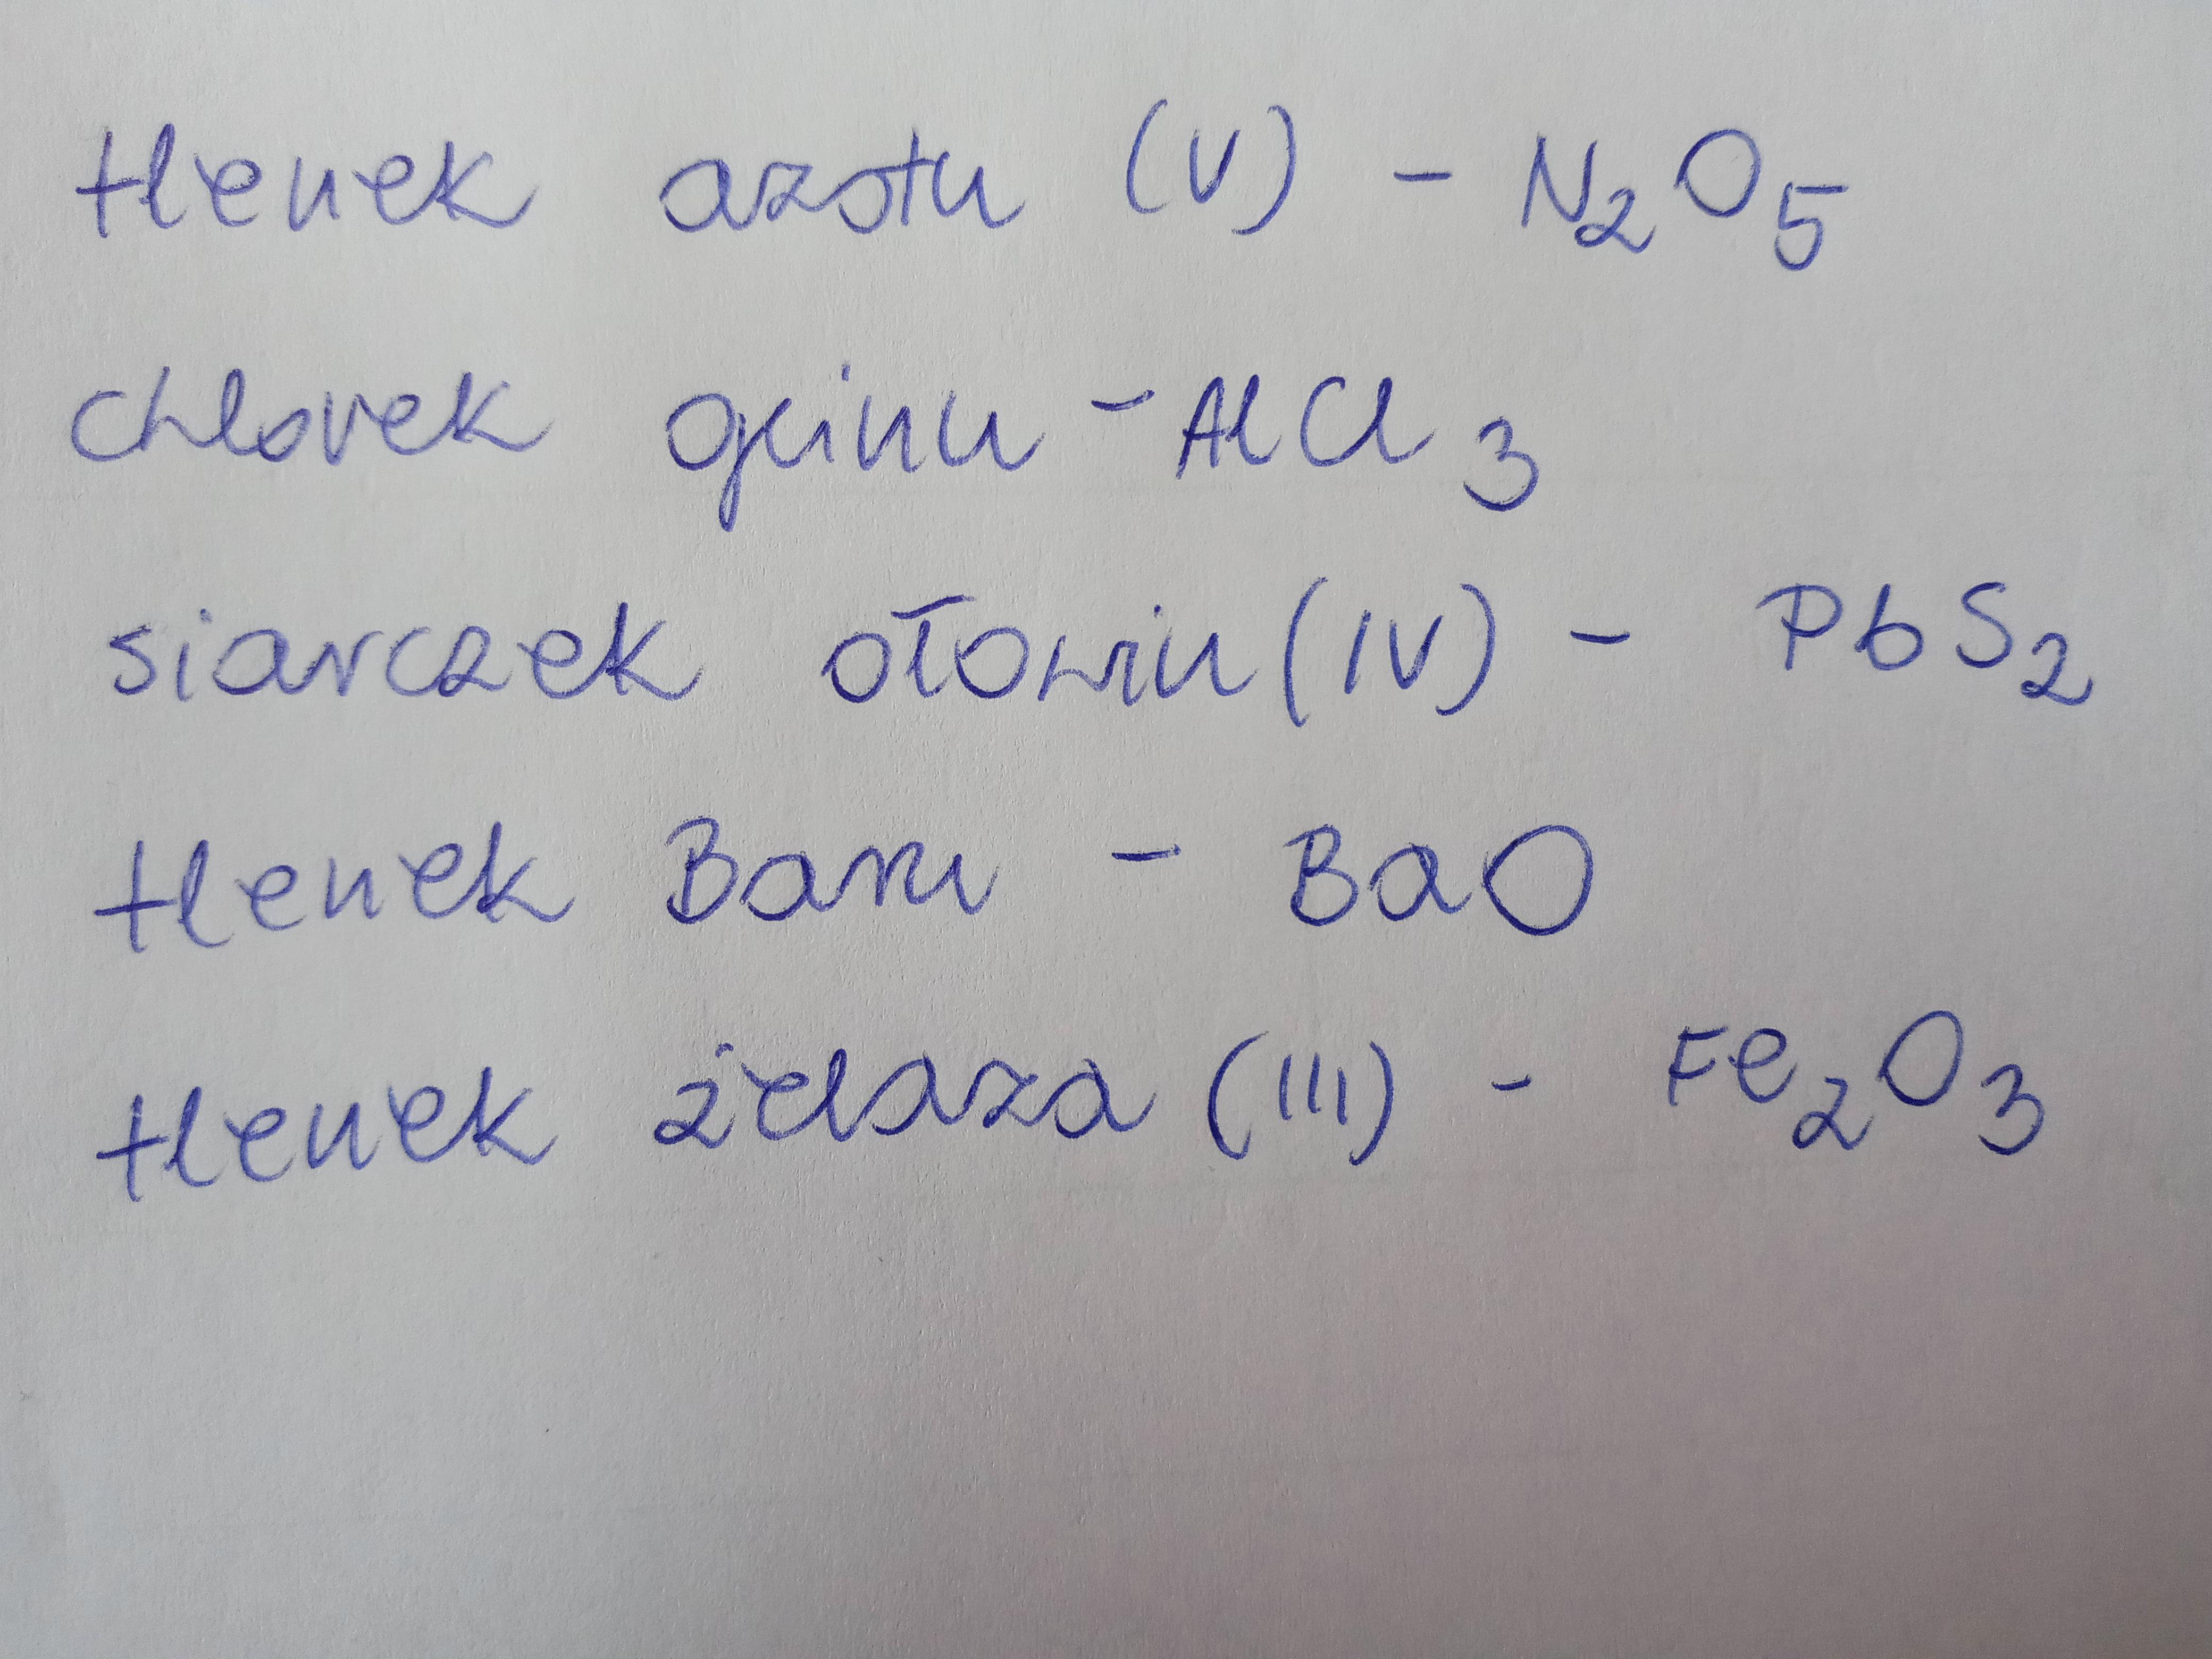 tlenek azotu (V) - N₂O₅
chlorek glinu - AlCl₃
siarczek ołowiu (IV) - PbS₂
tlenek Baru - BaO
tlenek żelaza (III) - Fe₂O₃